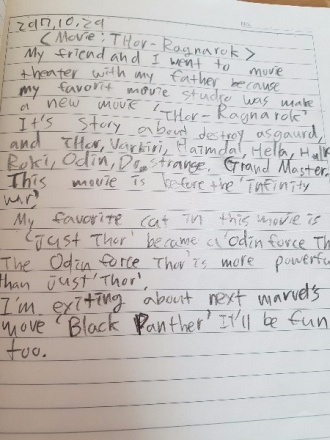 2017.10.29
<Movie: THor-Ragnarok>
My friend and I went to movie
theater with my father because
my favorit movie studio was make
a new movie, 'THor-Ragnarok'
It's story about destroy asgaurd,
and THor, Varkiri, Haimdal, Hella, Hulk
Roki, Odin, Dr. strange, Grand Master.
This movie is before the 'infinity
wr'
My favorite cat in this movie is
'just Thor' became a 'odin force Th
The Odin force Thor is more powerfu
than just 'Thor'.
I'm exiting about next marvels
move 'Black Panther' It'll be fun
too.